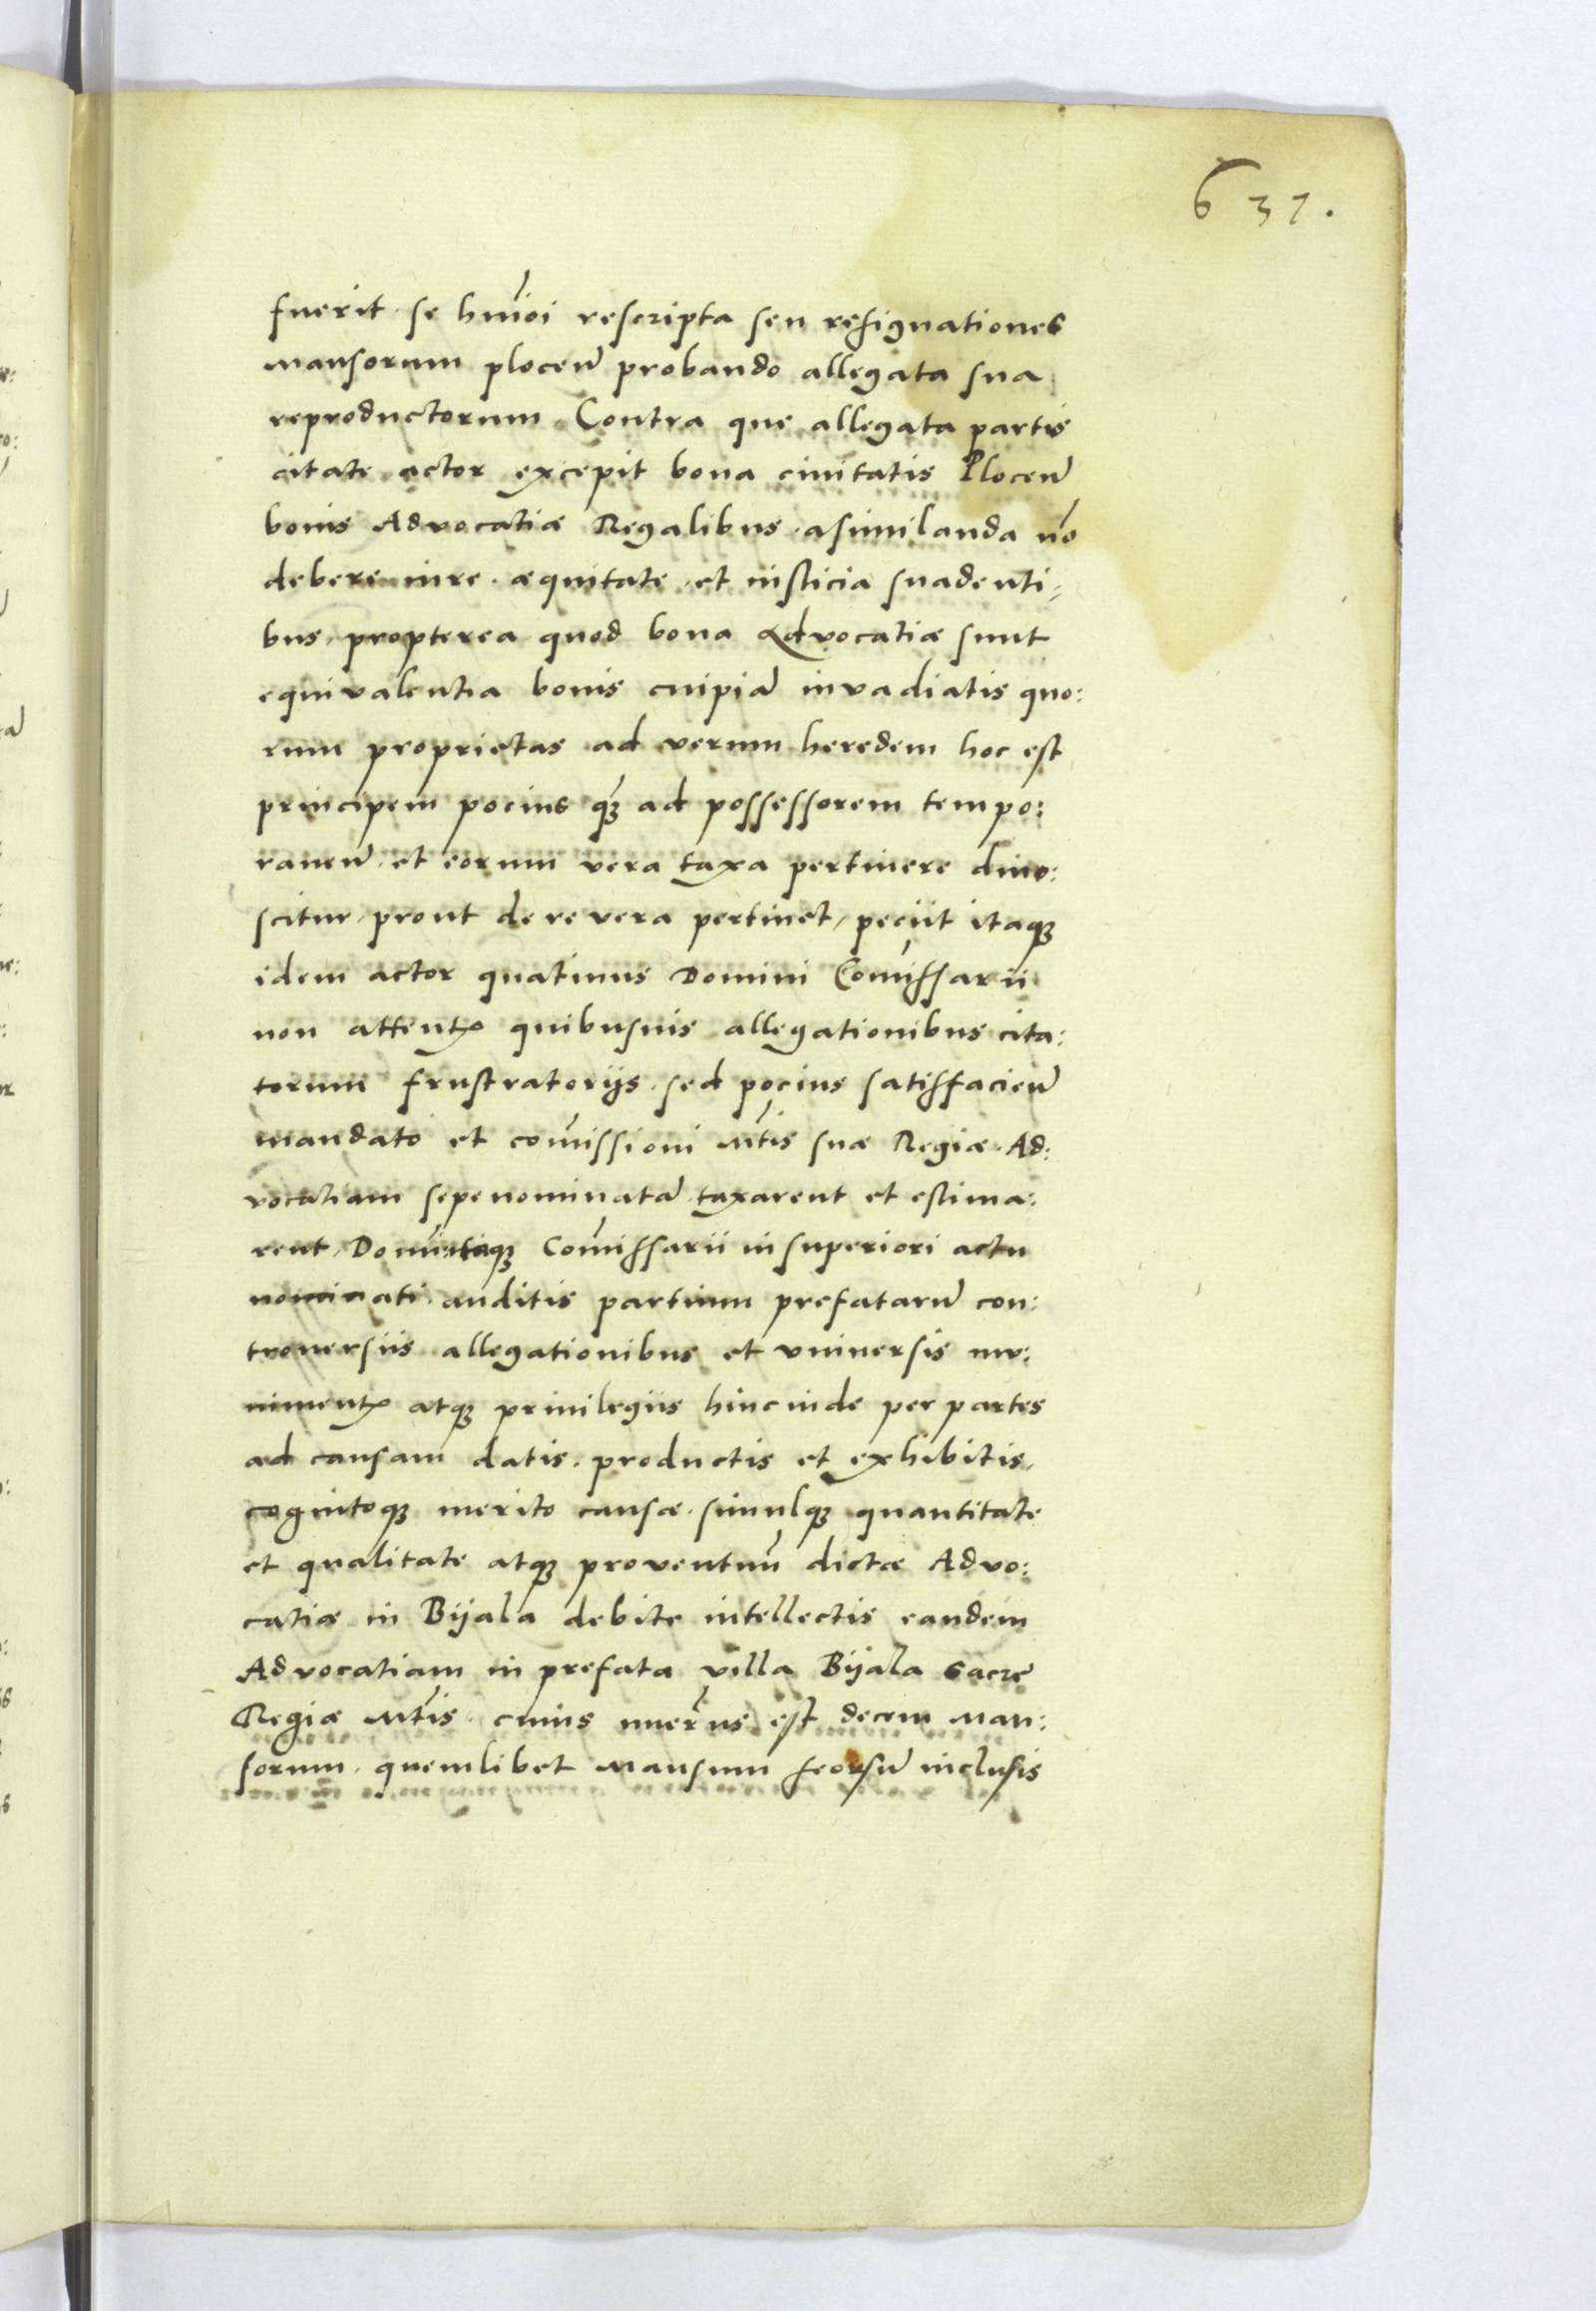 637.
fuerit se hmõi rescripta seu resignationes
mansorum plocen̄ probando allegata sua
reproductorum. Contra que allegata partis
citate actor excepit bona ciuitatis Plocen̄
bonis Advocatiæ Regalibus asimilanda nō
debere iure. æquitate et iusticia suadenti⸗
bus, propterea quod bona Advocatiæ sunt
equivalentia bonis cuipiā invadiatis quo:
rum proprietas ad verum heredem hoc est
principem pocius q̃ ad possessorem tempo:
raneū et eorum vera taxa pertinere dino:
scitur, prout de re vera pertinet, peciit itaqꝫ
idem actor quatinus Domini Com̃issarii
non attentꝭ quibusuis allegationibus cita:
torum frustratorijs. sed pocius satisfacien̄
mandato et com̃issioni Mt̃is suæ Regiæ Ad:
vocatiam sepenominatā taxarent et estima:
rent, Domi itaqꝫ Com̃issarii in superiori actu
nominati auditis partium prefatarū con:
trouersiis allegationibus et vniuersis mu:
nimentꝭ atqꝫ priuilegiis hinc inde per partes
ad causam datis. productis et exhibitis,
cognitoqꝫ merito causæ. simulqꝫ quantitate
et qualitate atqꝫ proventuū dictæ Advo:
catiæ in Bijala debite intellectis eandem
Advocatiam in prefata villa Bijala sacre
Regiæ Mt̃is. cuius nuer̃us est decem man:
sorum. quemlibet mansum seorsū inclusis